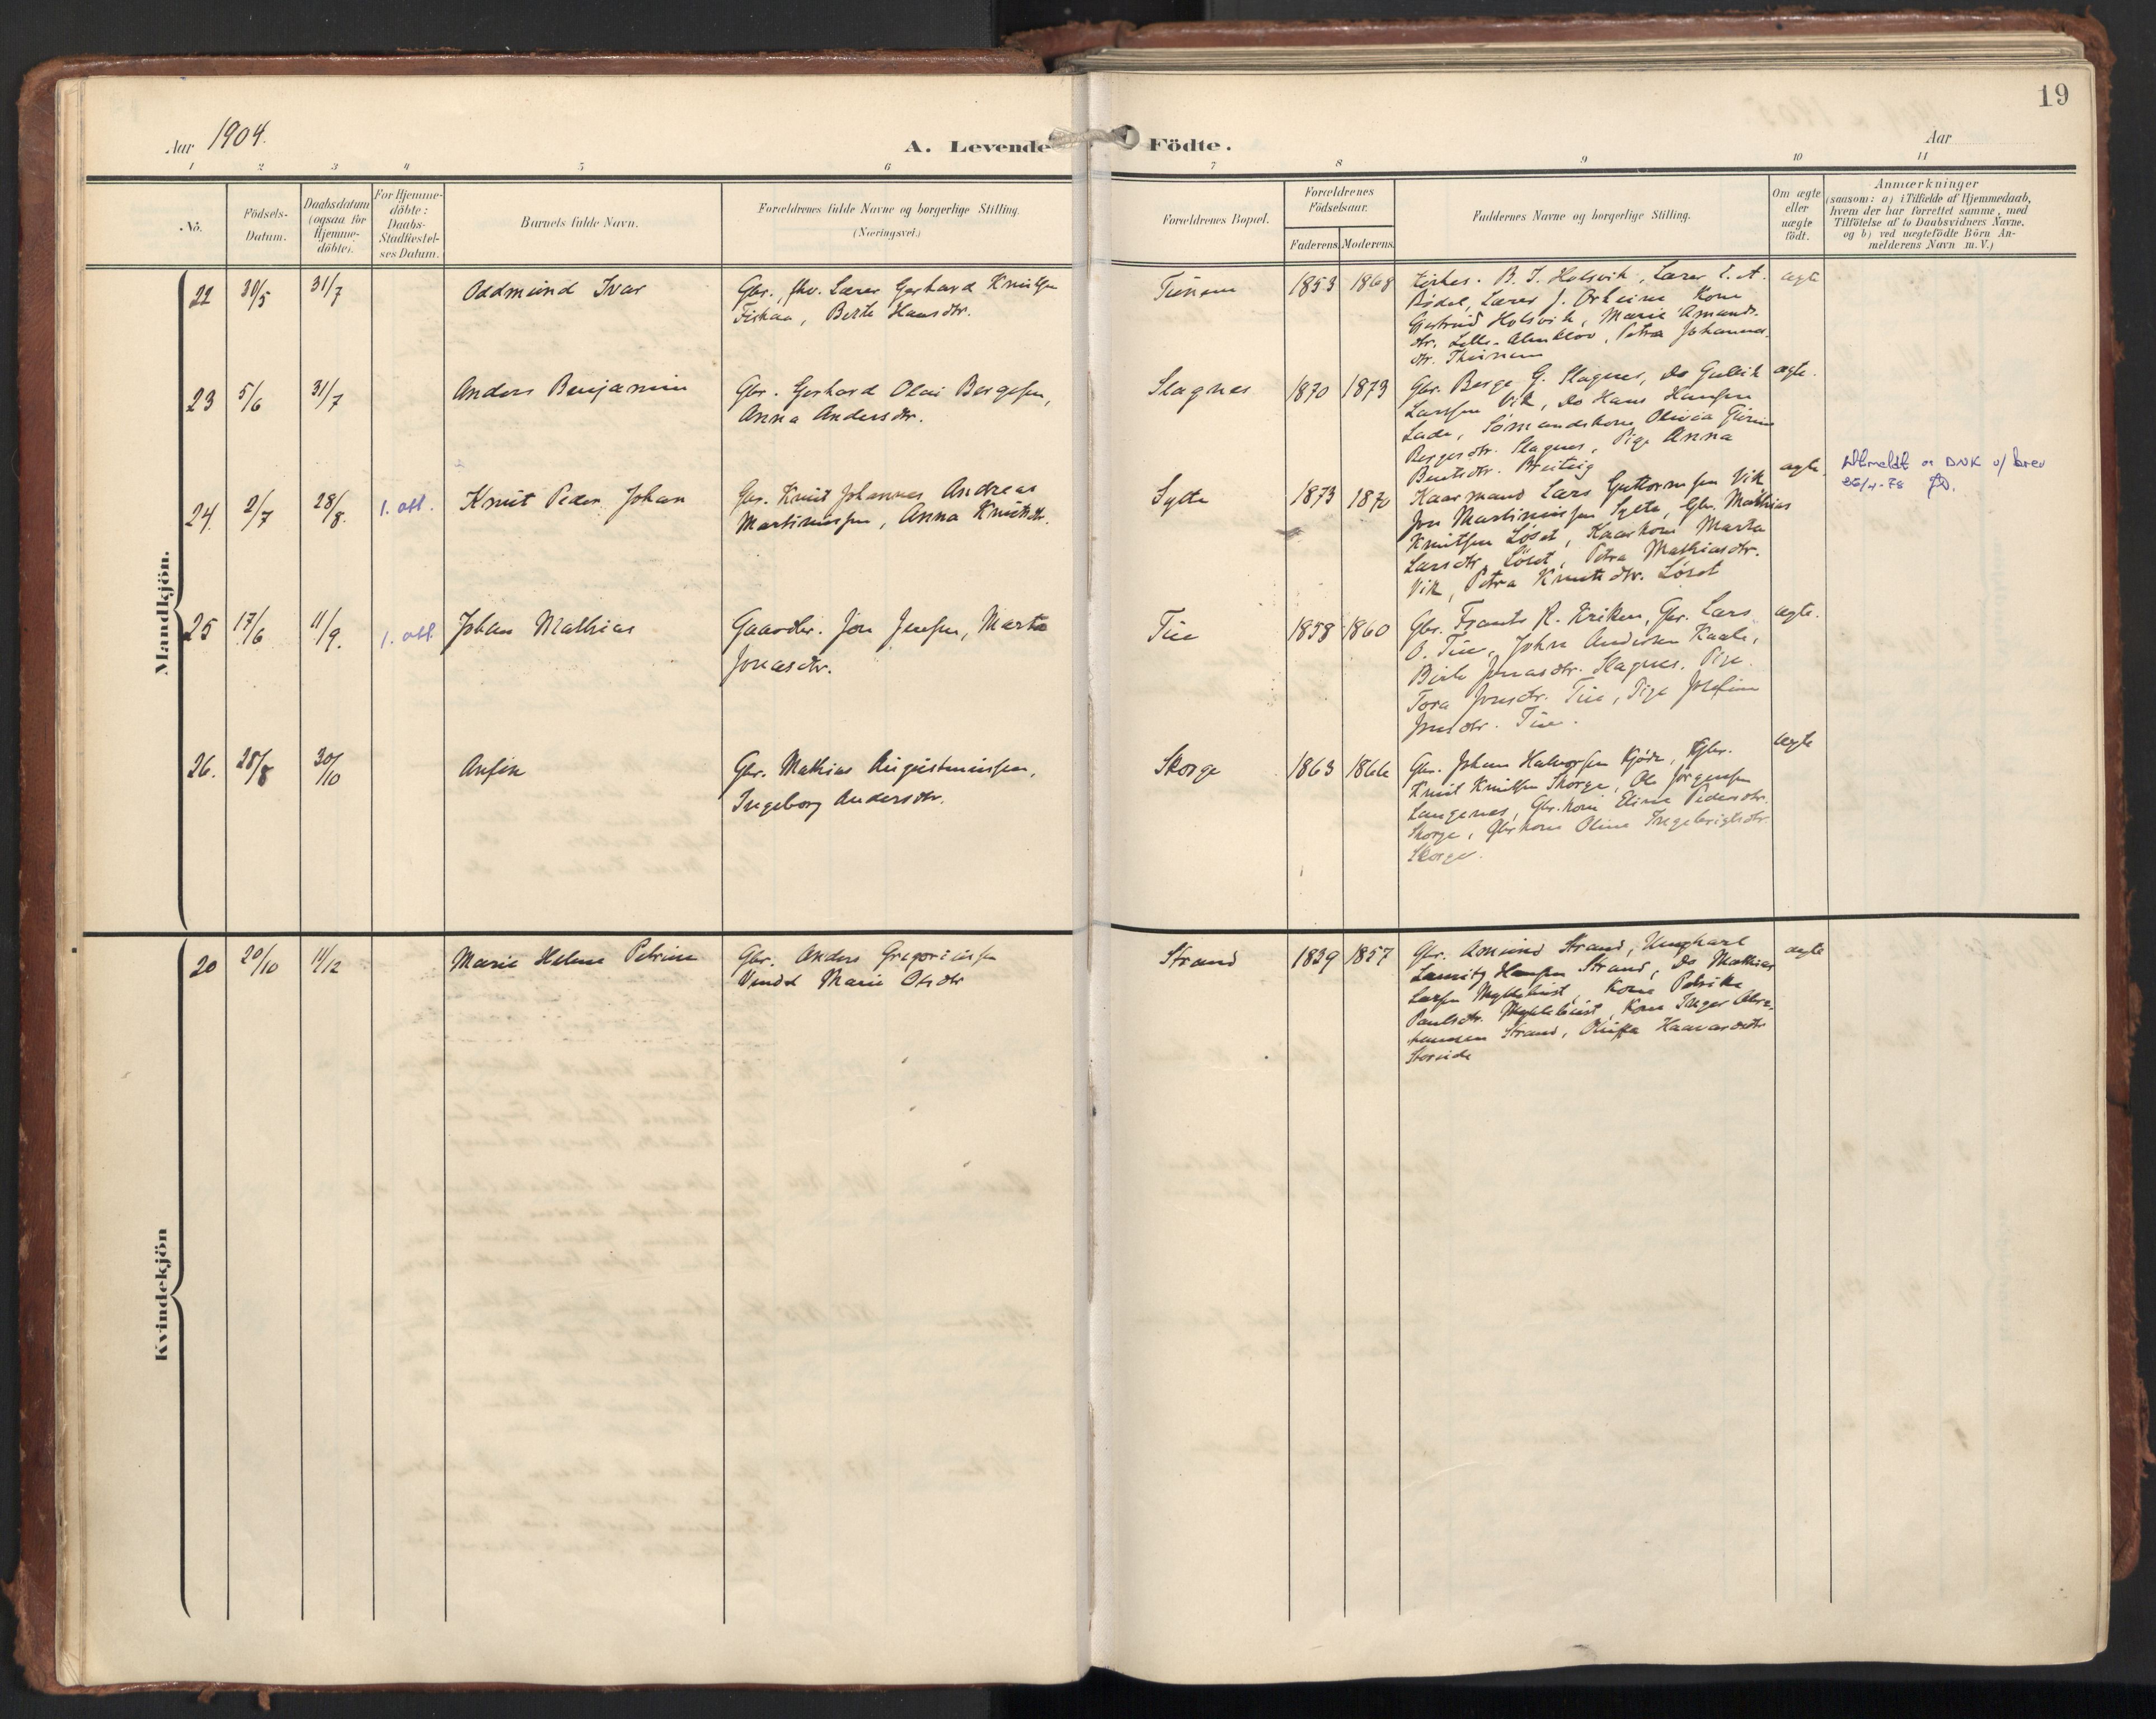 19
Aar 1904.
A. Levende Födte.
Aar
1 2 3 4 5 6 7 8 9 10 11
No.
Födsels-
Datum.
Daabsdatum
(ogsaa for
Hjemme-
döbte).
For Hjemme-
döbte:
Daabs-
Stadfæstel-
ses Datum.
Barnets fulde Navn.
Forældrenes fulde Navne og borgerlige Stilling.
(Næringsvei.)
Forældrenes Bopæl.
Forældrenes
Födselsaar.
Faderens. Moderens.
Faddernes Navne og borgerlige Stilling.
Om ægte
eller
uægte
födt.
Anmærkninger
(saasom: a) i Tilfælde af Hjemmedaab,
hvem der har forrettet samme, med
Tilföielse af to Daabsvidners Navne.
og b) ved uægtefödte Börn An-
melderens Navn m.V.)
Mandkjön.
22 30/5 31/7 Oddmund Ivar
Gbr., fhv. Lærer Gerhard Knutsen
Fiskaa, Berte Hansdtr.
Tunem 1853 1868
Kirkes. B. J. Holsvik, Lærer E. A.
Bödal, Lærer J. Orheim Kone
Gjertrud Holsvik, Marie Amunds-
dtr. Lille-Almklov, Petra Johannes-
dtr. Thunem
ægte
23 5/6 31/7 Anders Benjamin
Gbr. Gerhard Olai Bergesen,
Anna Andersdtr.
Slagnes 1870 1873
Gbr. Berge G. Slagnes, Do Gullik
Larssen Vik, Do Hans Hansen
Lade, Sömandskone Olivia
Bergesdtr. Slagnes, Pige Anna
Bentsdtr. Breiteig
ægte.
24. 2/7 28/8. 1. att. Knut Peder Johan
Gbr. Knut Johannes Andreas
Martinussen, Anna Knutsdtr.
Sylte 1873 1870
Kaarmand Lars Guttormsen Vik
Jon Martinussen Sylte, Gbr. Mathias
Knutsen Löset, Kaarkone Marta
Larsdtr. Löset, Petra Mathiasdtr.
Vik, Petra Knutsdtr. Löset
ægte.
Utmeldt av DNK v/ brev
26/4-78
25 17/6 11/9. 1. att. Johan Mathias
Gaardbr. Jon Jensen, Marta
Jonasdtr.
Tue 1858 1860
Gbr. Frants R. Eriken, Gbr. Lars
O. Tue, John Andersen Kaale,
Berte Jonasdtr. Slagnes. Pige
Tora Jonsdtr. Tue, Pige Josefine
Jonsdtr. Tue.
ægte.
26. 28/8 30/10 Anfin
Gbr. Mathias Augustinussen,
Ingeborg Andersdtr.
Skorge 1863 1866
Gbr. Johan Halvorsen Kjöde, Gbr.
Knut Knutsen Skorge, Ole Jörgensen
Langenes, Gbr.kone Eline Pedersdtr.
Skorge, Gbrkone Oline Ingebrigtsdtr.
Skorge.
ægte
Kvindekjön
20 20/10 11/12 Marie Helene Petrine
Gbr. Anders Gregoriussen
Marie Olsdtr
Strand 1839 1857
Gbr. Asmund Strand, Ungkarl
Lauritz Hansen Strand, Do Mathias
Larsen Myklebust, Kone Petrike
Paulsdtr. Myklebust, Kone Inger Abra-
hamsen Strand, Oluffa Haavardsdtr
Storeide
ægte